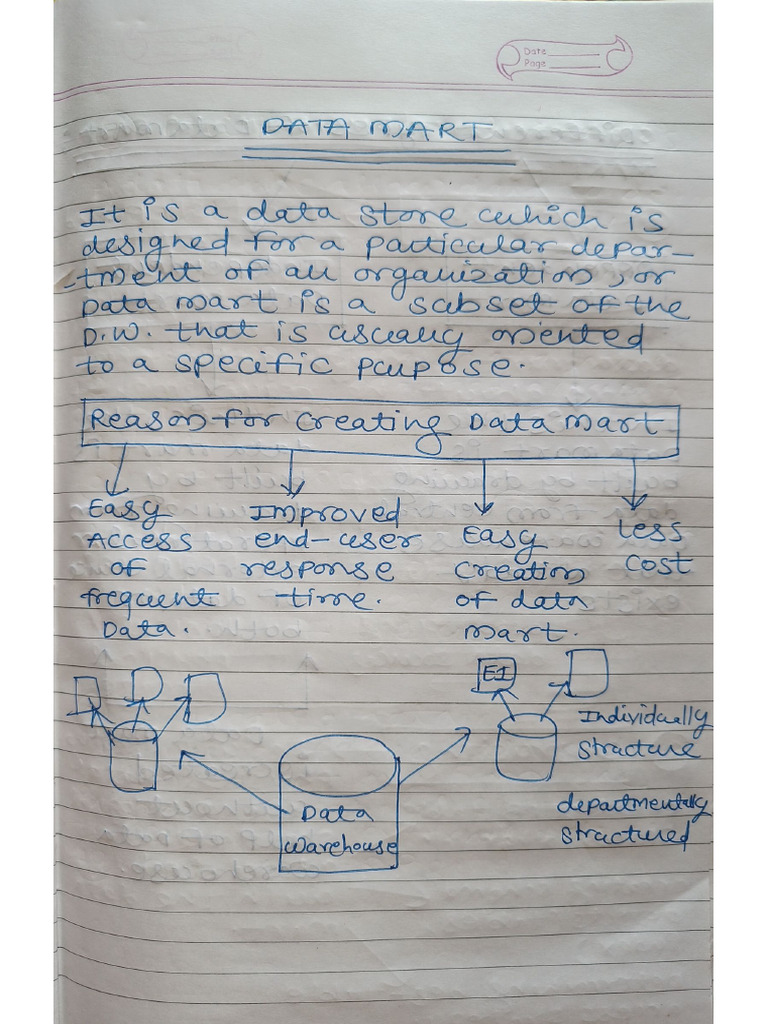 Date
Page
DATA MART
It is a data store which is
designed for a particular depar-
tment of an organization, or
Data mart is a subset of the
D.W. that is usually oriented
to a specific purpose.
Reason for Creating Data Mart
Easy
Access
of
frequent
Data.
Improved
end-user
response
time.
Easy
Creation
of data
mart.
Less
cost
EI
Individually
Structure
departmentally
Structured
Data
Warehouse